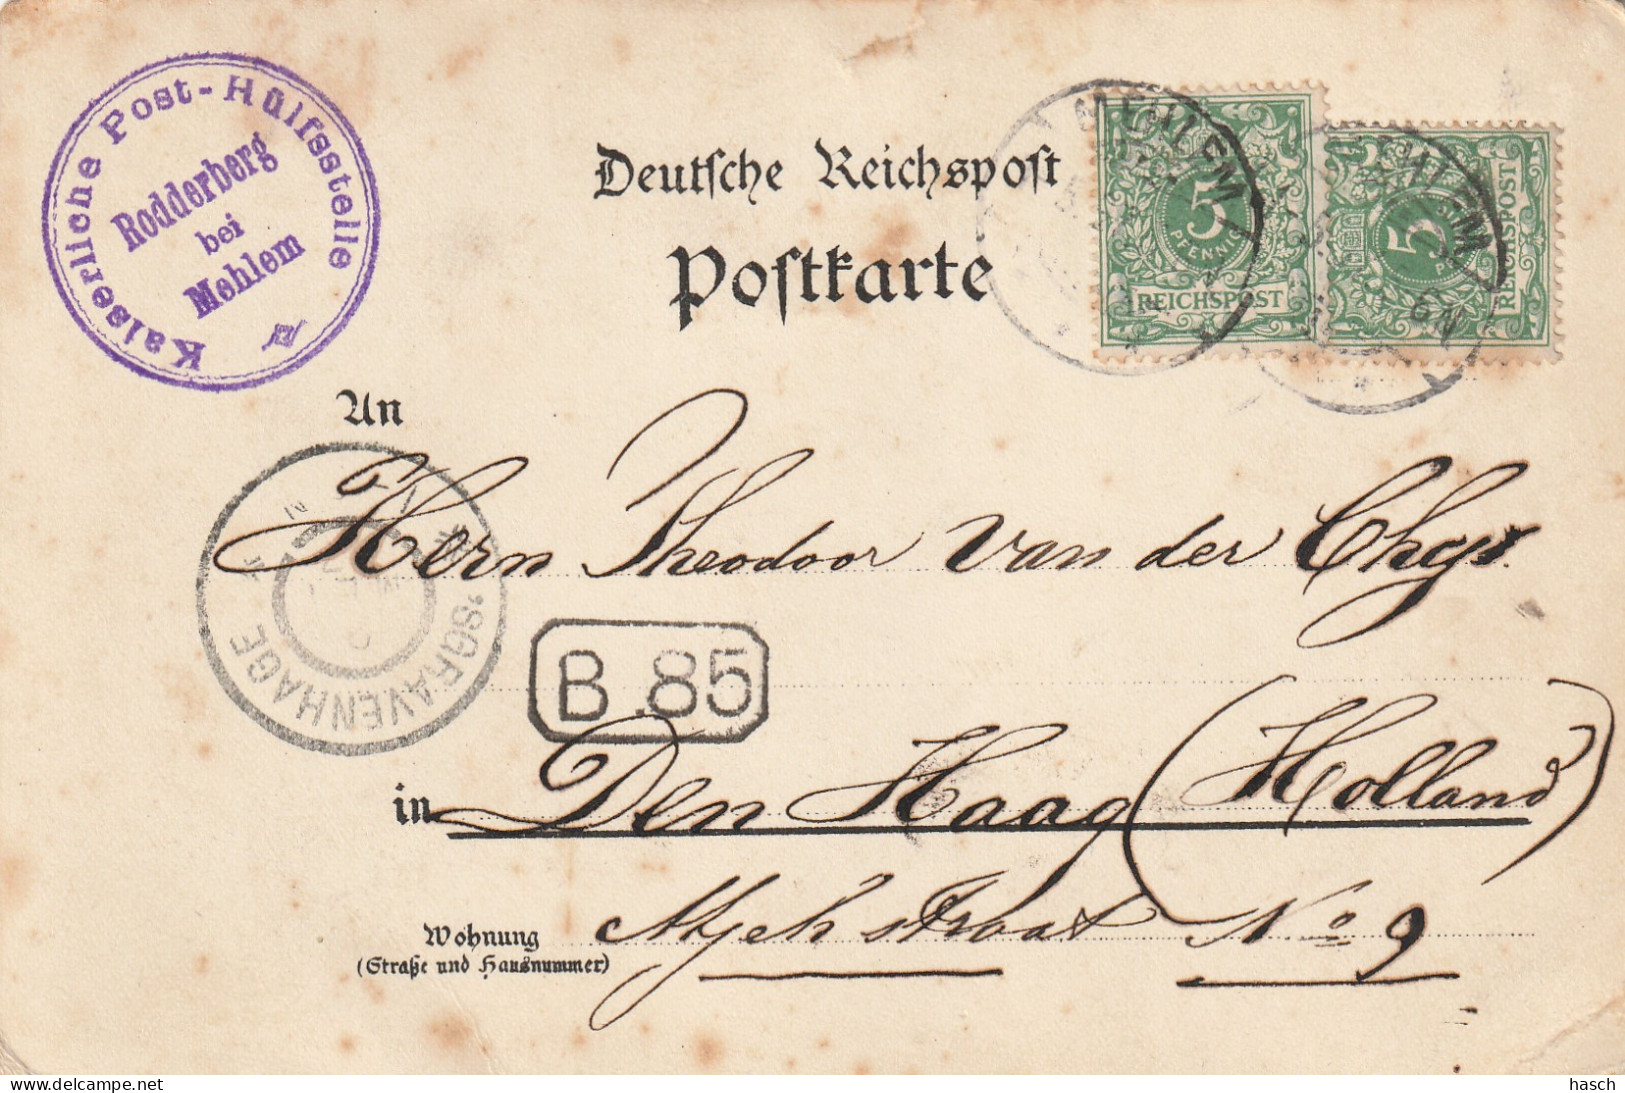 Kaiserliche Post-Hülfsstelle
Rodderberg
bei
Mehlem
Deutsche Reichspost
Postkarte
MEHLEM
5
PFENNIG
REICHSPOST
MEHLEM
5
REICHSPOST
An
Herrn Theodoor van der Chys
'SGRAVENHAGE
B.85
in Den Haag (Holland)
Wohnung
(Straße und Hausnummer)
straat No 9
hasch